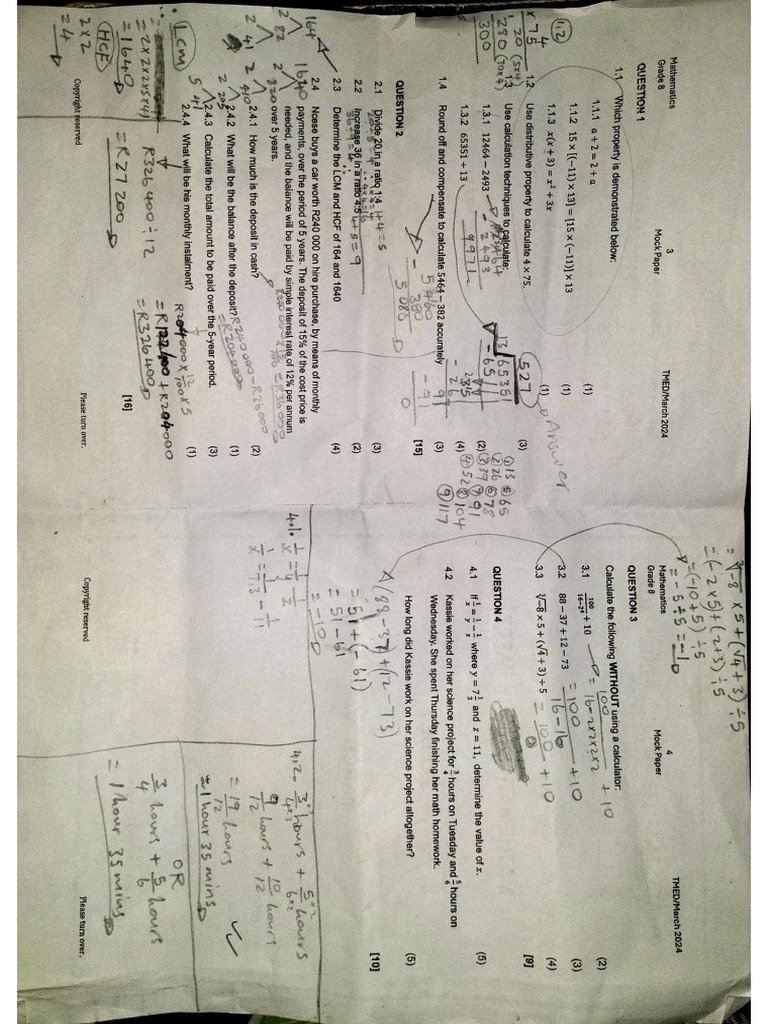 3
Mathematics
Grade 8
Mock Paper
TMED/March 2024
QUESTION 1
1.1 Which property is demonstrated below:
1.1.1 a + 2 = 2 + a (1)
1.1.2 15 × [(−11) × 13] = [15 × (−11)] × 13 (1)
1.1.3 x(x + 3) = x² + 3x (1)
1.2 Use distributive property to calculate 4 × 75. (3)
1.3 Use calculation techniques to calculate:
1.3.1 12464 − 2493 (2)
1.3.2 65351 ÷ 13 (4)
1.4 Round off and compensate to calculate 5464 − 382 accurately (3)
[15]
1.2
4
× 75
20 (5×4)
280 (70×4)
300
- 2493
9971
527
13 65351
- 65
- 91
0
Answer
① 13 ⑤ 65
② 26 ⑥ 78
③ 39 ⑦ 91
④ 52 ⑧ 104
⑨ 117
5460
- 380
5080
QUESTION 2
2.1 Divide 20 in a ratio 1:4 (3)
1+4=5
20÷5=4
2.2 Increase 36 in a ratio 4:5 (2)
4+5=9
36÷9=4
2.3 Determine the LCM and HCF of 164 and 1640 (4)
2.4 Ncese buys a car worth R240 000 on hire purchase, by means of monthly
payments, over the period of 5 years. The deposit of 15% of the cost price is
needed, and the balance will be paid by simple interest rate of 12% per annum
over 5 years.
2.4.1 How much is the deposit in cash? (2)
2.4.2 What will be the balance after the deposit? (1)
R240000 - R36000
= R204000
2.4.3 Calculate the total amount to be paid over the 5-year period. (3)
2.4.4 What will be his monthly instalment? (1)
[16]
164
2 82
2 41
1640
2 820
2 410
2 205
5 41
LCM
= 2×2×2×5×41
= 1640
HCF
2×2
= 4
R326400 ÷ 12
= R27 200
R204000 × 12/100 × 5
= R122400 + R204000
= R326400
Copyright reserved
Please turn over.
4
Mathematics
Grade 8
Mock Paper
TMED/March 2024
= ∛−8 × 5 + (√4 + 3) ÷ 5
= (−2×5) + (2+3) ÷ 5
= (−10+5) ÷ 5
= −5 ÷ 5 = −1
QUESTION 3
Calculate the following WITHOUT using a calculator:
3.1 100/16−2⁴ + 10 (2)
3.2 88 − 37 + 12 − 73 (3)
3.3 ∛−8 × 5 + (√4 + 3) ÷ 5 (4)
[9]
= 100/16−2×2×2×2 + 10
= 100/16−16 + 10
= 100/0 + 10
QUESTION 4
4.1 If 1/x = 1/y − 1/z where y = 7 1/3 and z = 11, determine the value of x. (5)
4.2 Kassie worked on her science project for 3/4 hours on Tuesday and 5/6 hours on
Wednesday. She spent Thursday finishing her math homework.
How long did Kassie work on her science project altogether? (5)
[10]
(88 − 37) + (12 − 73)
= 51 + (−61)
= 51 − 61
= −10
4.1. 1/x = 1/y − 1/z
4.2. 3×3/4×3 hours + 5×2/6×2 hours
9/12 hours + 10/12 hours
= 19/12 hours
= 1 hour 35 mins
OR
3/4 hours + 5/6 hours
= 1 hour 35 mins
Copyright reserved
Please turn over.